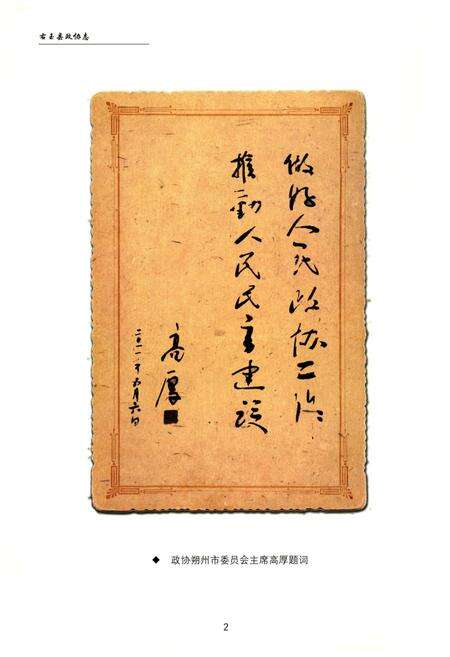 右玉县政协志
做好人民政协工作
推動人民民主建設
高厚
二〇一一年五月六日
◆ 政协朔州市委员会主席高厚题词
2